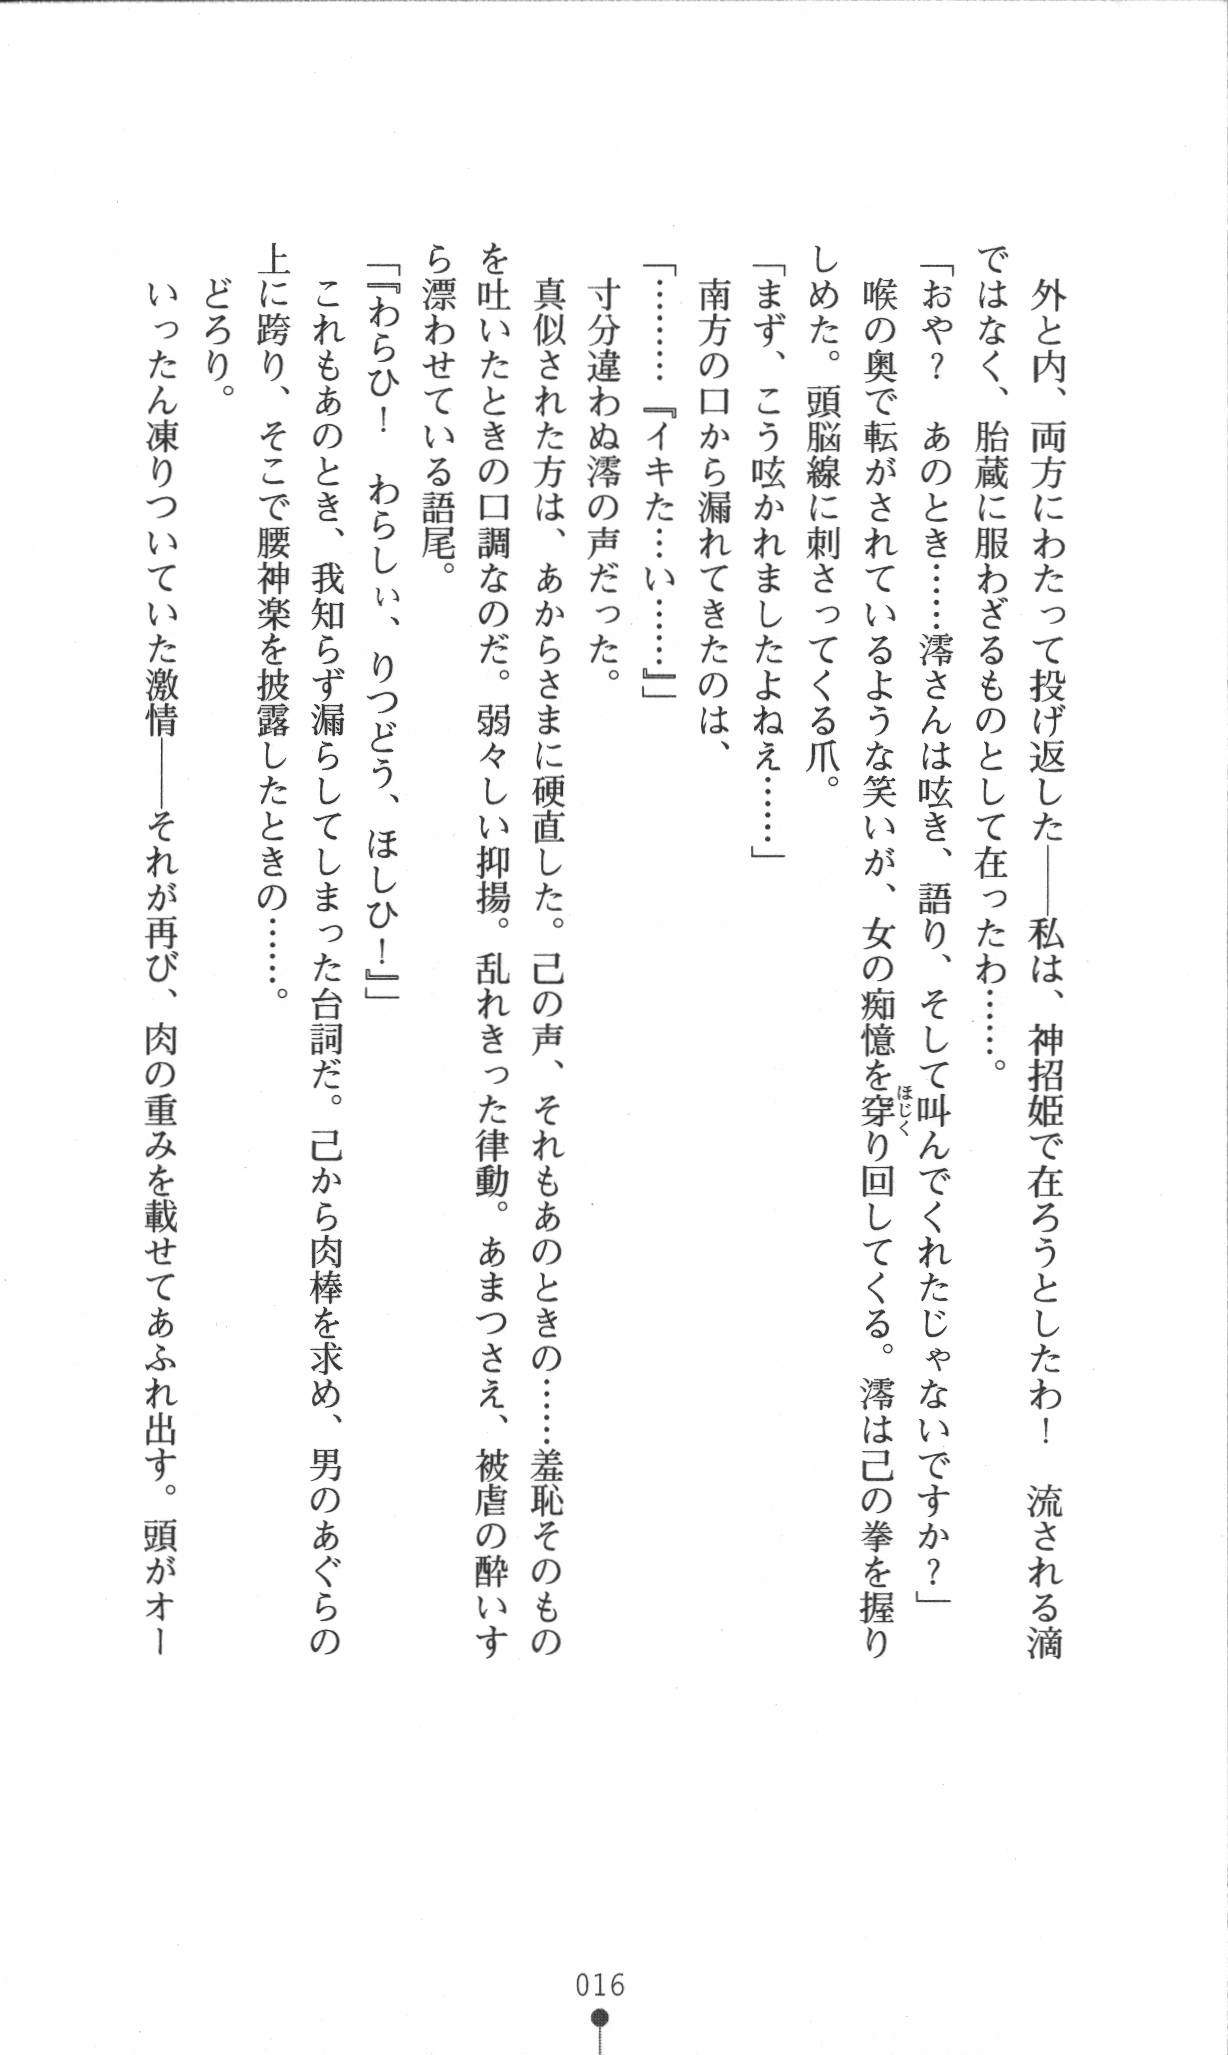 外と内、両方にわたって投げ返した――私は、神招姫で在ろうとしたわ！　流される滴
ではなく、胎蔵に服わざるものとして在ったわ……。
「おや？　あのとき……澪さんは呟き、語り、そして叫んでくれたじゃないですか？」
喉の奥で転がされているような笑いが、女の痴憶を穿り回してくる。澪は己の拳を握り
ほじく
しめた。頭脳線に刺さってくる爪。
「まず、こう呟かれましたよねえ……」
南方の口から漏れてきたのは、
「………『イキた…い……』」
寸分違わぬ澪の声だった。
真似された方は、あからさまに硬直した。己の声、それもあのときの……羞恥そのもの
を吐いたときの口調なのだ。弱々しい抑揚。乱れきった律動。あまつさえ、被虐の酔いす
ら漂わせている語尾。
「『わらひ！　わらしぃ、りつどう、ほしひ！』」
これもあのとき、我知らず漏らしてしまった台詞だ。己から肉棒を求め、男のあぐらの
上に跨り、そこで腰神楽を披露したときの……。
どろり。
いったん凍りついていた激情――それが再び、肉の重みを載せてあふれ出す。頭がオー
016